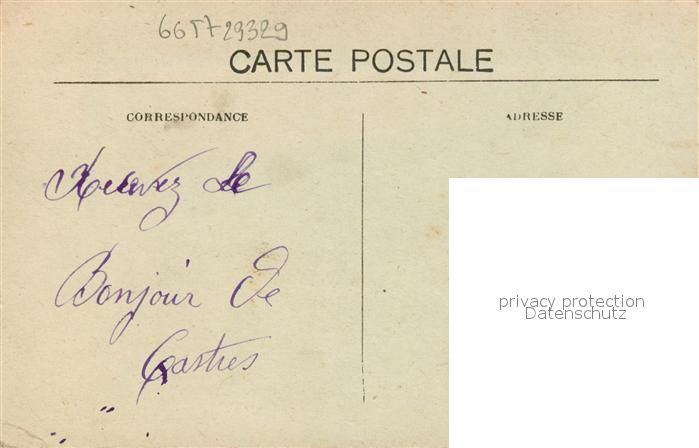 66T729329
CARTE POSTALE
CORRESPONDANCE
ADRESSE
Recevez Le
Bonjour De
Castres
privacy protection
Datenschutz